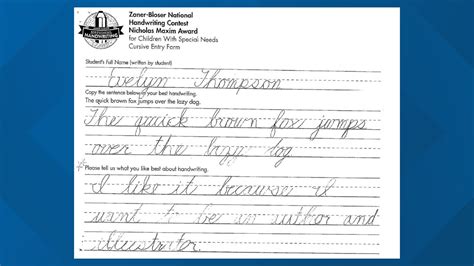 Zaner-Bloser National
Handwriting Contest
Nicholas Maxim Award
for Children With Special Needs
Cursive Entry Form
HANDWRITING
Student's Full Name (written by student)
Evelyn Thompson
Copy the sentence below in your best handwriting.
The quick brown fox jumps over the lazy dog.
The quick brown fox jumps
over the lazy dog
Please tell us what you like best about handwriting.
I like it because I
want to be an author and
illustrator.